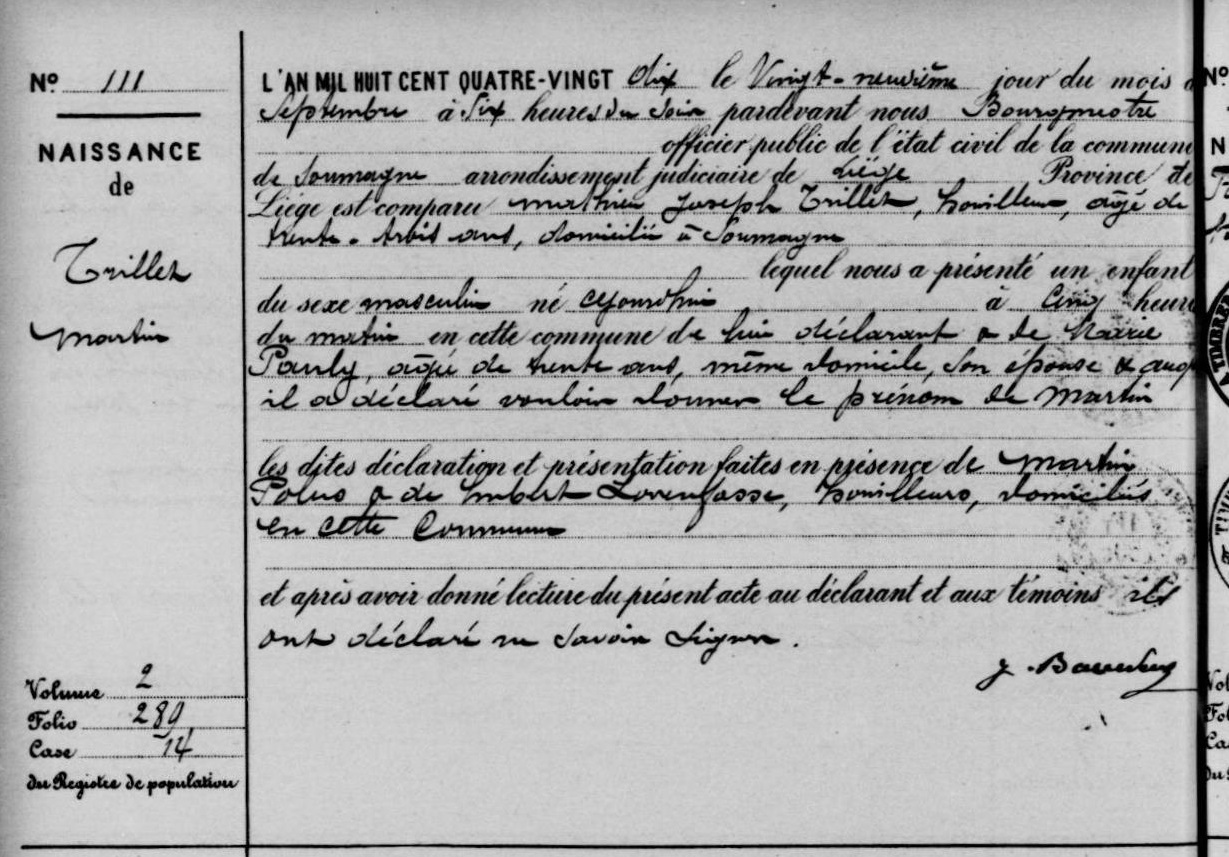 Nº 111
NAISSANCE
de
Trillet
Martin
Volume 2
Folio 289
Case 14
du Registre de population
L'AN MIL HUIT CENT QUATRE-VINGT dix le Vingt-neuvième jour du mois d
Septembre à Six heures du Soir pardevant nous Bourgmestre
officier public de l'état civil de la commune
de Soumagne arrondissement judiciaire de Liège Province de
Liège est comparu Mathieu Joseph Trillet, houilleur, âgé de
trente-trois ans, domicilié à Soumagne
lequel nous a présenté un enfant
du sexe masculin né cejourd'hui à Cinq heure
du matin en cette commune de lui déclarant & de Marie
Pauly, âgée de trente ans, même domicile, Son épouse & auq
il a déclaré vouloir donner le prénom de Martin
les dites déclaration et présentation faites en présence de Martin
& de houilleurs, domiciliés
en cette Commune
et après avoir donné lecture du présent acte au déclarant et aux témoins ils
ont déclaré ne Savoir Signer.